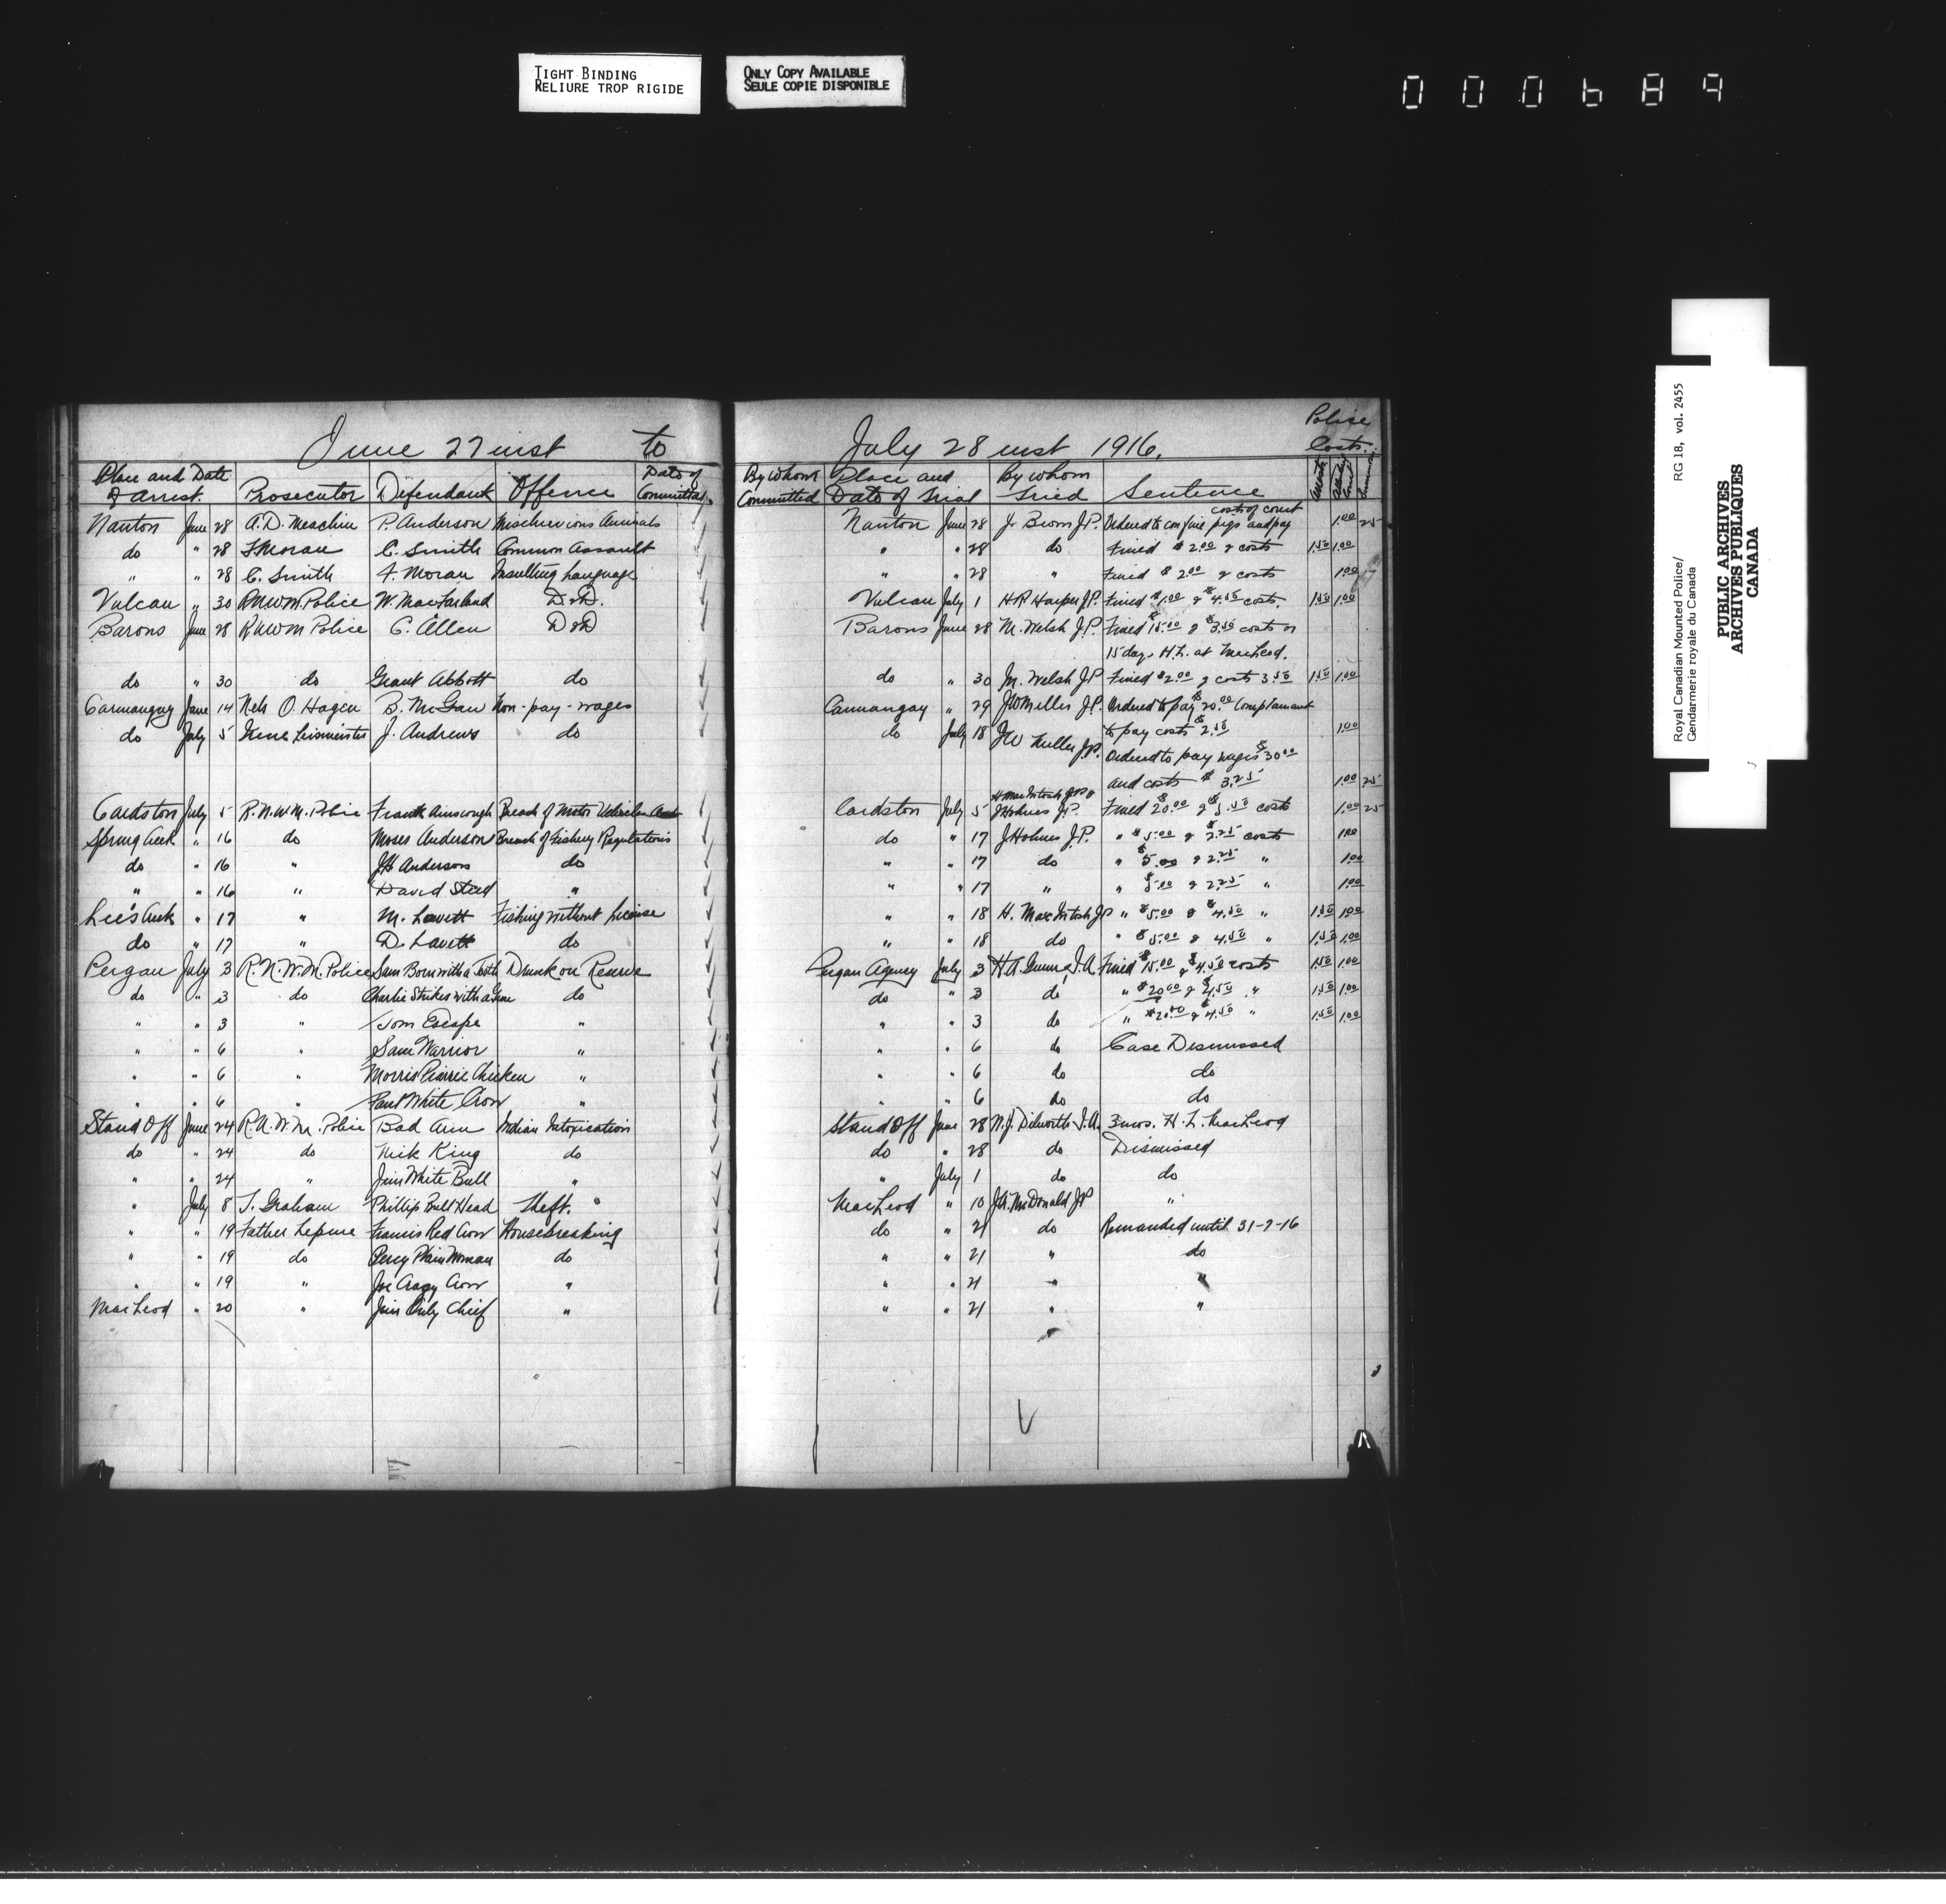 TIGHT BINDING
RELIURE TROP RIGIDE
ONLY COPY AVAILABLE
SEULE COPIE DISPONIBLE
000689
Royal Canadian Mounted Police/ RG 18, vol. 2455
Gendarmerie royale du Canada
PUBLIC ARCHIVES
ARCHIVES PUBLIQUES
CANADA
June 27 inst to July 28 inst 1916. Police Costs.
Place and Date of Arrest. Prosecutor Defendant Offence Date of Committal. By whom Committed Place and Date of Trial By whom Tried Sentence
Nanton June 28 A.D. P. Anderson Mischievious Animals Nanton June 28 J. J.P. Ordered to confine pigs and pay costs of court 1.00 25
do " 28 F Moran C. Smith Common Assault " " 28 do Fined $2.00 & costs 1.50 1.00
" " 28 C. Smith F. Moran Insulting Language " " 28 " Fined $2.00 & costs 1.00
Vulcan " 30 RNWM Police W. MacFarland D&D. Vulcan July 1 H.R. Harper J.P. Fined $1.00 & $4.50 costs. 1.50 1.00
Barons June 28 RNWM Police C. Allen D&D Barons June 28 M. Welsh J.P. Fined $15.00 & $3.50 costs or
15 days H.L. at MacLeod.
do " 30 do Grant Abbott do do " 30 M. Welsh J.P. Fined $2.00 & costs 3.50 1.50 1.00
Carmangay June 14 Nels O. Hagen B. McGaw Non-pay-wages Carmangay " 29 JW Miller J.P. Ordered to pay $20.00 Complainant
do July 5 J. Andrews do do July 18 JW Miller J.P. to pay costs $2.50 1.00
Ordered to pay wages $30.00
and costs $3.25 1.00 25
Cardston July 5 R.N.W.M. Police Frank Breach of Motor Vehicles Act Cardston July 5 H. MacIntosh JP & J Holmes J.P. Fined $20.00 & costs 1.00 25
Spring Creek " 16 do Moses Anderson Breach of Fishery Regulations do " 17 J Holmes J.P. " $5.00 & $2.25 costs 1.00
do " 16 " J.H. Anderson do " " 17 do " $5.00 & 2.25 " 1.00
" " 16 " David Steed " " " 17 " " $5.00 & 2.25 " 1.00
Lee's Creek " 17 " M. Lavett Fishing without License " " 18 H. MacIntosh JP " $5.00 & $4.50 " 1.50 1.00
do " 17 " D. Lavett do " " 18 do " $5.00 & 4.50 " 1.50 1.00
Peigan July 3 R.N.W.M. Police Sam Born with a Tooth Drunk on Reserve Peigan Agency July 3 H.A. Gunn I.A. Fined $15.00 & $4.50 costs 1.50 1.00
do " 3 do Charlie Strikes with a Gun do do " 3 do " $20.00 & $4.50 " 1.50 1.00
" " 3 " Tom Escape " " " 3 do " $20.00 & $4.50 " 1.50 1.00
" " 6 " Sam Warrior " " " 6 do Case Dismissed
" " 6 " Morris Prairie Chicken " " " 6 do do
" " 6 " Paul White Crow " " " 6 do do
Stand Off June 24 R.N.W.M. Police Bad Arm Indian Intoxication Stand Off June 28 W.J. Dilworth I.A. 3 mos. H.L. MacLeod
do " 24 do Nick King do do " 28 do Dismissed
" " 24 " Jim White Bull " " July 1 do do
" July 8 T. Graham Phillip Bull Head Theft. " MacLeod " 10 J.A. McDonald J.P. "
" " 19 Father Lepine Francis Red Crow Housebreaking do " 21 do Remanded until 31-7-16
" " 19 do Percy Plain Woman do " " 21 " do
" " 19 " Joe Crazy Crow " " " 21 " "
MacLeod " 20 " Jim Only Chief " " " 21 " "